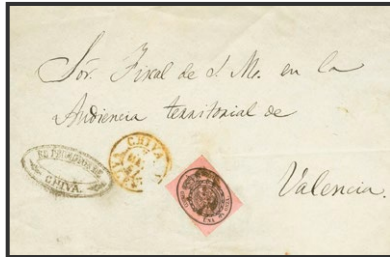 Sor. Fiscal de S. M. en la
Audiencia territorial de
Valencia.
CHIVA
CHIVA.